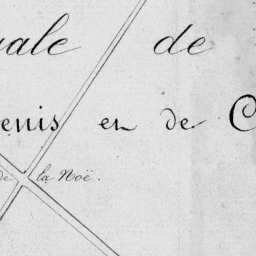 uale de
enis en de C
de la Noë.